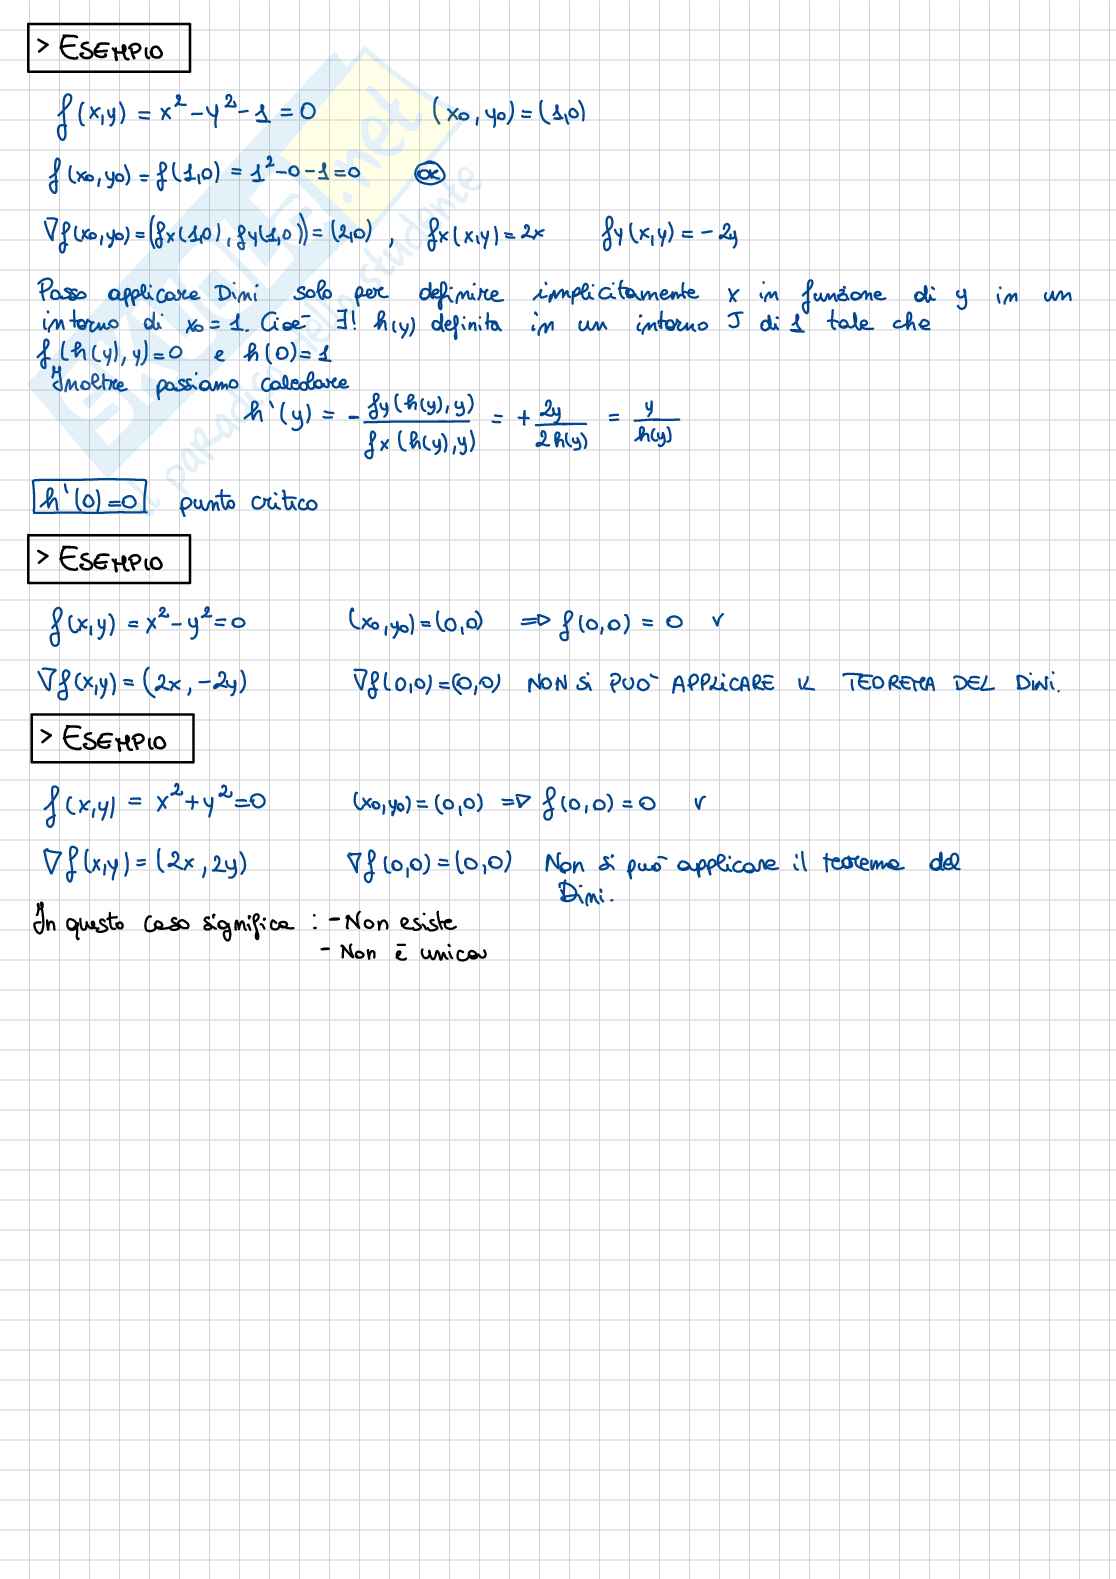 > ESEMPIO
f(x,y) = x²-y²-1=0 (x₀,y₀)=(1,0)
f(x₀,y₀)=f(1,0) = 1²-0-1=0 OK
∇f(x₀,y₀)=(fx(1,0), fy(1,0))=(2,0), fx(x,y)=2x fy(x,y)=-2y
Posso applicare Dini solo per definire implicitamente x in funzione di y in un
intorno di x₀=1. Cioè ∃! h(y) definita in un intorno J di 1 tale che
f(h(y),y)=0 e h(0)=1
Inoltre possiamo calcolare
h'(y) = - fy(h(y),y) / fx(h(y),y) = + 2y / 2h(y) = y / h(y)
h'(0)=0 punto critico
> ESEMPIO
f(x,y) = x²-y²=0 (x₀,y₀)=(0,0) ⇒ f(0,0) = 0 v
∇f(x,y) = (2x,-2y) ∇f(0,0)=(0,0) NON SI PUÒ APPLICARE IL TEOREMA DEL DINI.
> ESEMPIO
f(x,y) = x²+y²=0 (x₀,y₀)=(0,0) ⇒ f(0,0)=0 v
∇f(x,y)=(2x,2y) ∇f(0,0)=(0,0) Non si può applicare il teorema del
Dini.
In questo caso significa : - Non esiste
- Non è unica